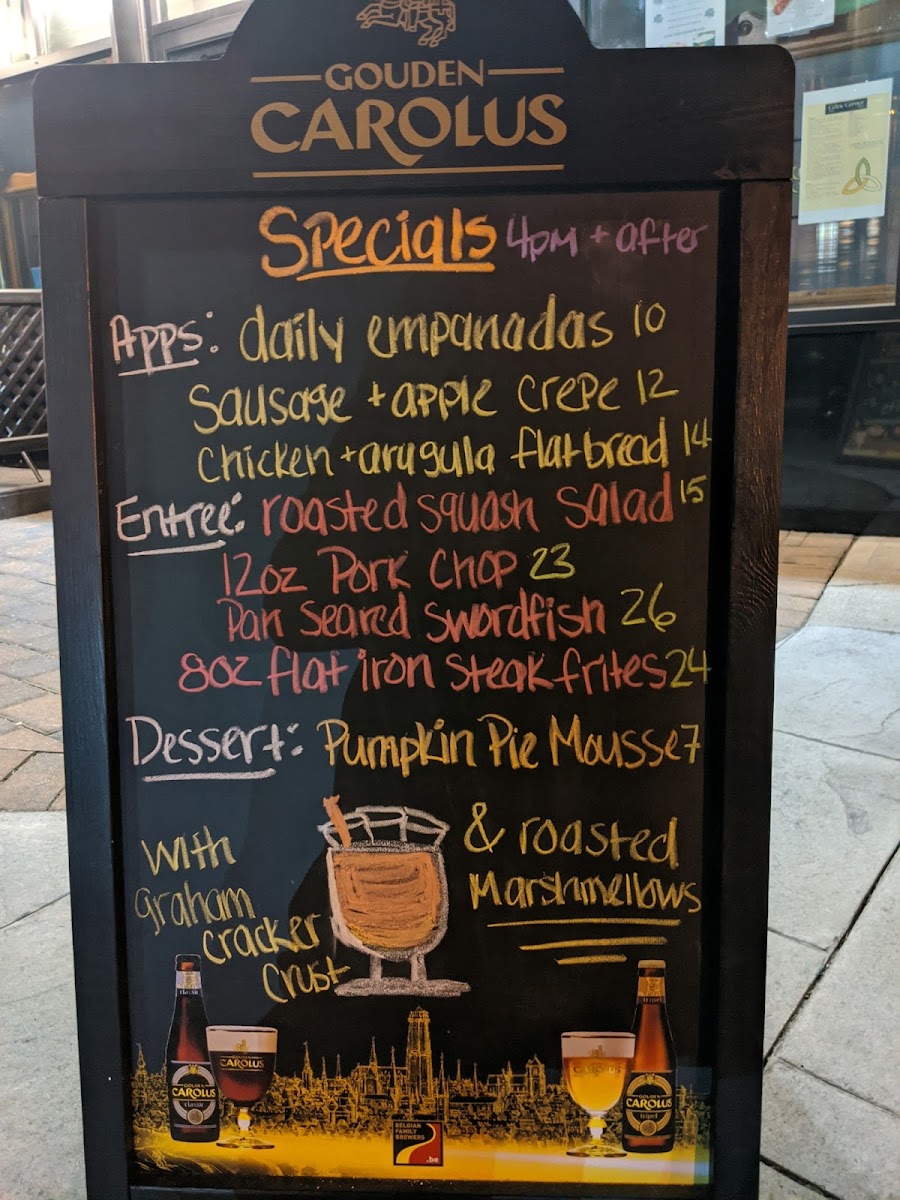 GOUDEN
CAROLUS
Specials 4pm + after
Apps: daily empanadas 10
Sausage + apple crepe 12
Chicken + arugula flatbread 14
Entree: roasted squash Salad 15
12oz Pork Chop 23
Pan Seared Swordfish 26
8oz flat iron steak frites 24
Dessert: Pumpkin Pie Mousse 7
With
graham
cracker
crust
& roasted
Marshmellows
GOUDEN
CAROLUS
classic
CAROLUS
CAROLUS
GOUDEN
CAROLUS
tripel
BELGIAN
FAMILY
BREWERS
.be
Celtic Corner